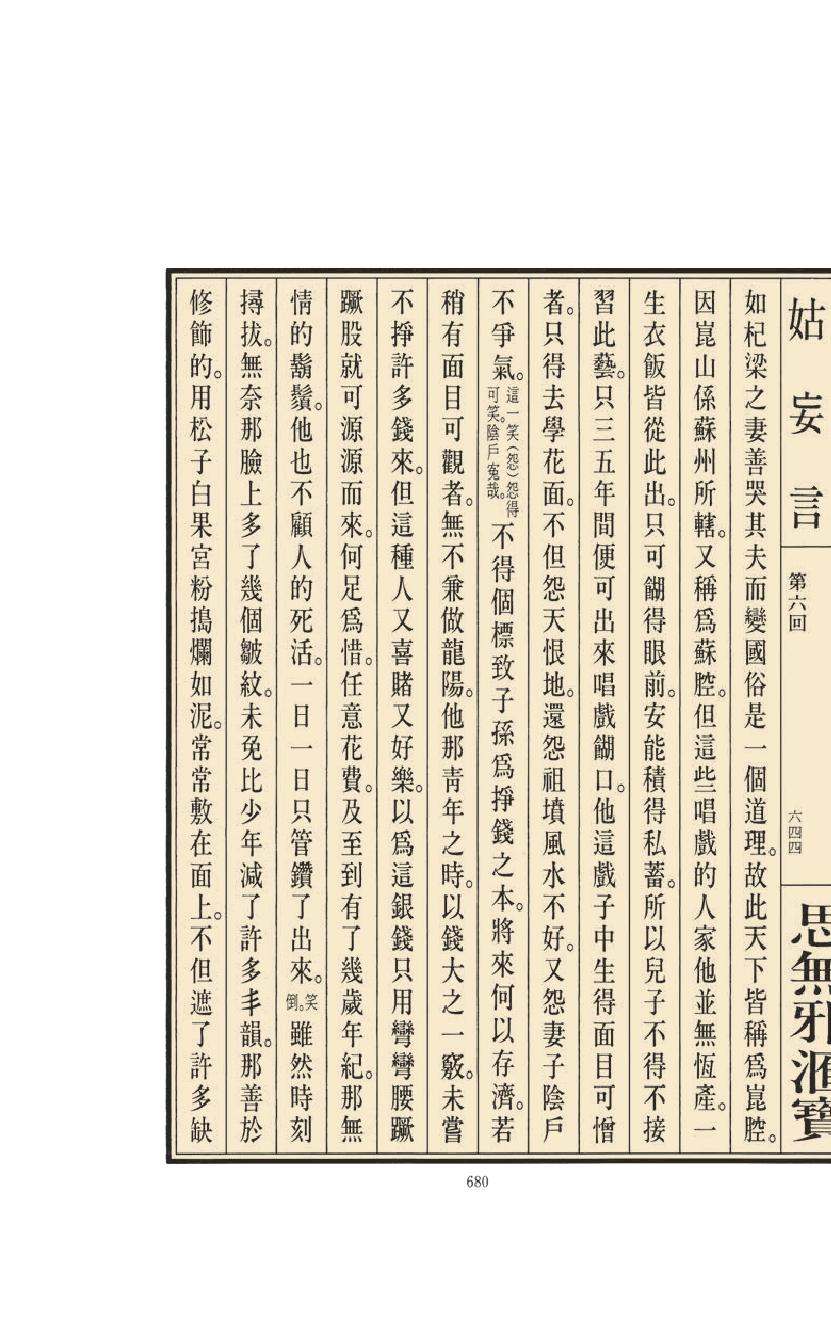 姑妄言
第六回
六四四
思無邪滙寶
如杞梁之妻善哭其夫而變國俗是一個道理。故此天下皆稱爲崑腔。
因崑山係蘇州所轄。又稱爲蘇腔。但這些唱戲的人家他並無恆產。一
生衣飯皆從此出。只可餬得眼前。安能積得私蓄。所以兒子不得不接
習此藝。只三五年間便可出來唱戲餬口。他這戲子中生得面目可憎
者。只得去學花面。不但怨天恨地。還怨祖墳風水不好。又怨妻子陰戶
不爭氣。這一笑（怨）怨得可笑。陰戶寃哉。不得個標致子孫爲掙錢之本。將來何以存濟。若
稍有面目可觀者。無不兼做龍陽。他那靑年之時。以錢大之一竅。未嘗
不掙許多錢來。但這種人又喜賭又好樂。以爲這銀錢只用彎彎腰蹶
蹶股就可源源而來。何足爲惜。任意花費。及至到有了幾歲年紀。那無
情的鬍鬚。他也不顧人的死活。一日一日只管鑽了出來。笑倒。雖然時刻
撏拔。無奈那臉上多了幾個皺紋。未免比少年減了許多丰韻。那善於
修飾的。用松子白果宮粉搗爛如泥。常常敷在面上。不但遮了許多缺
680